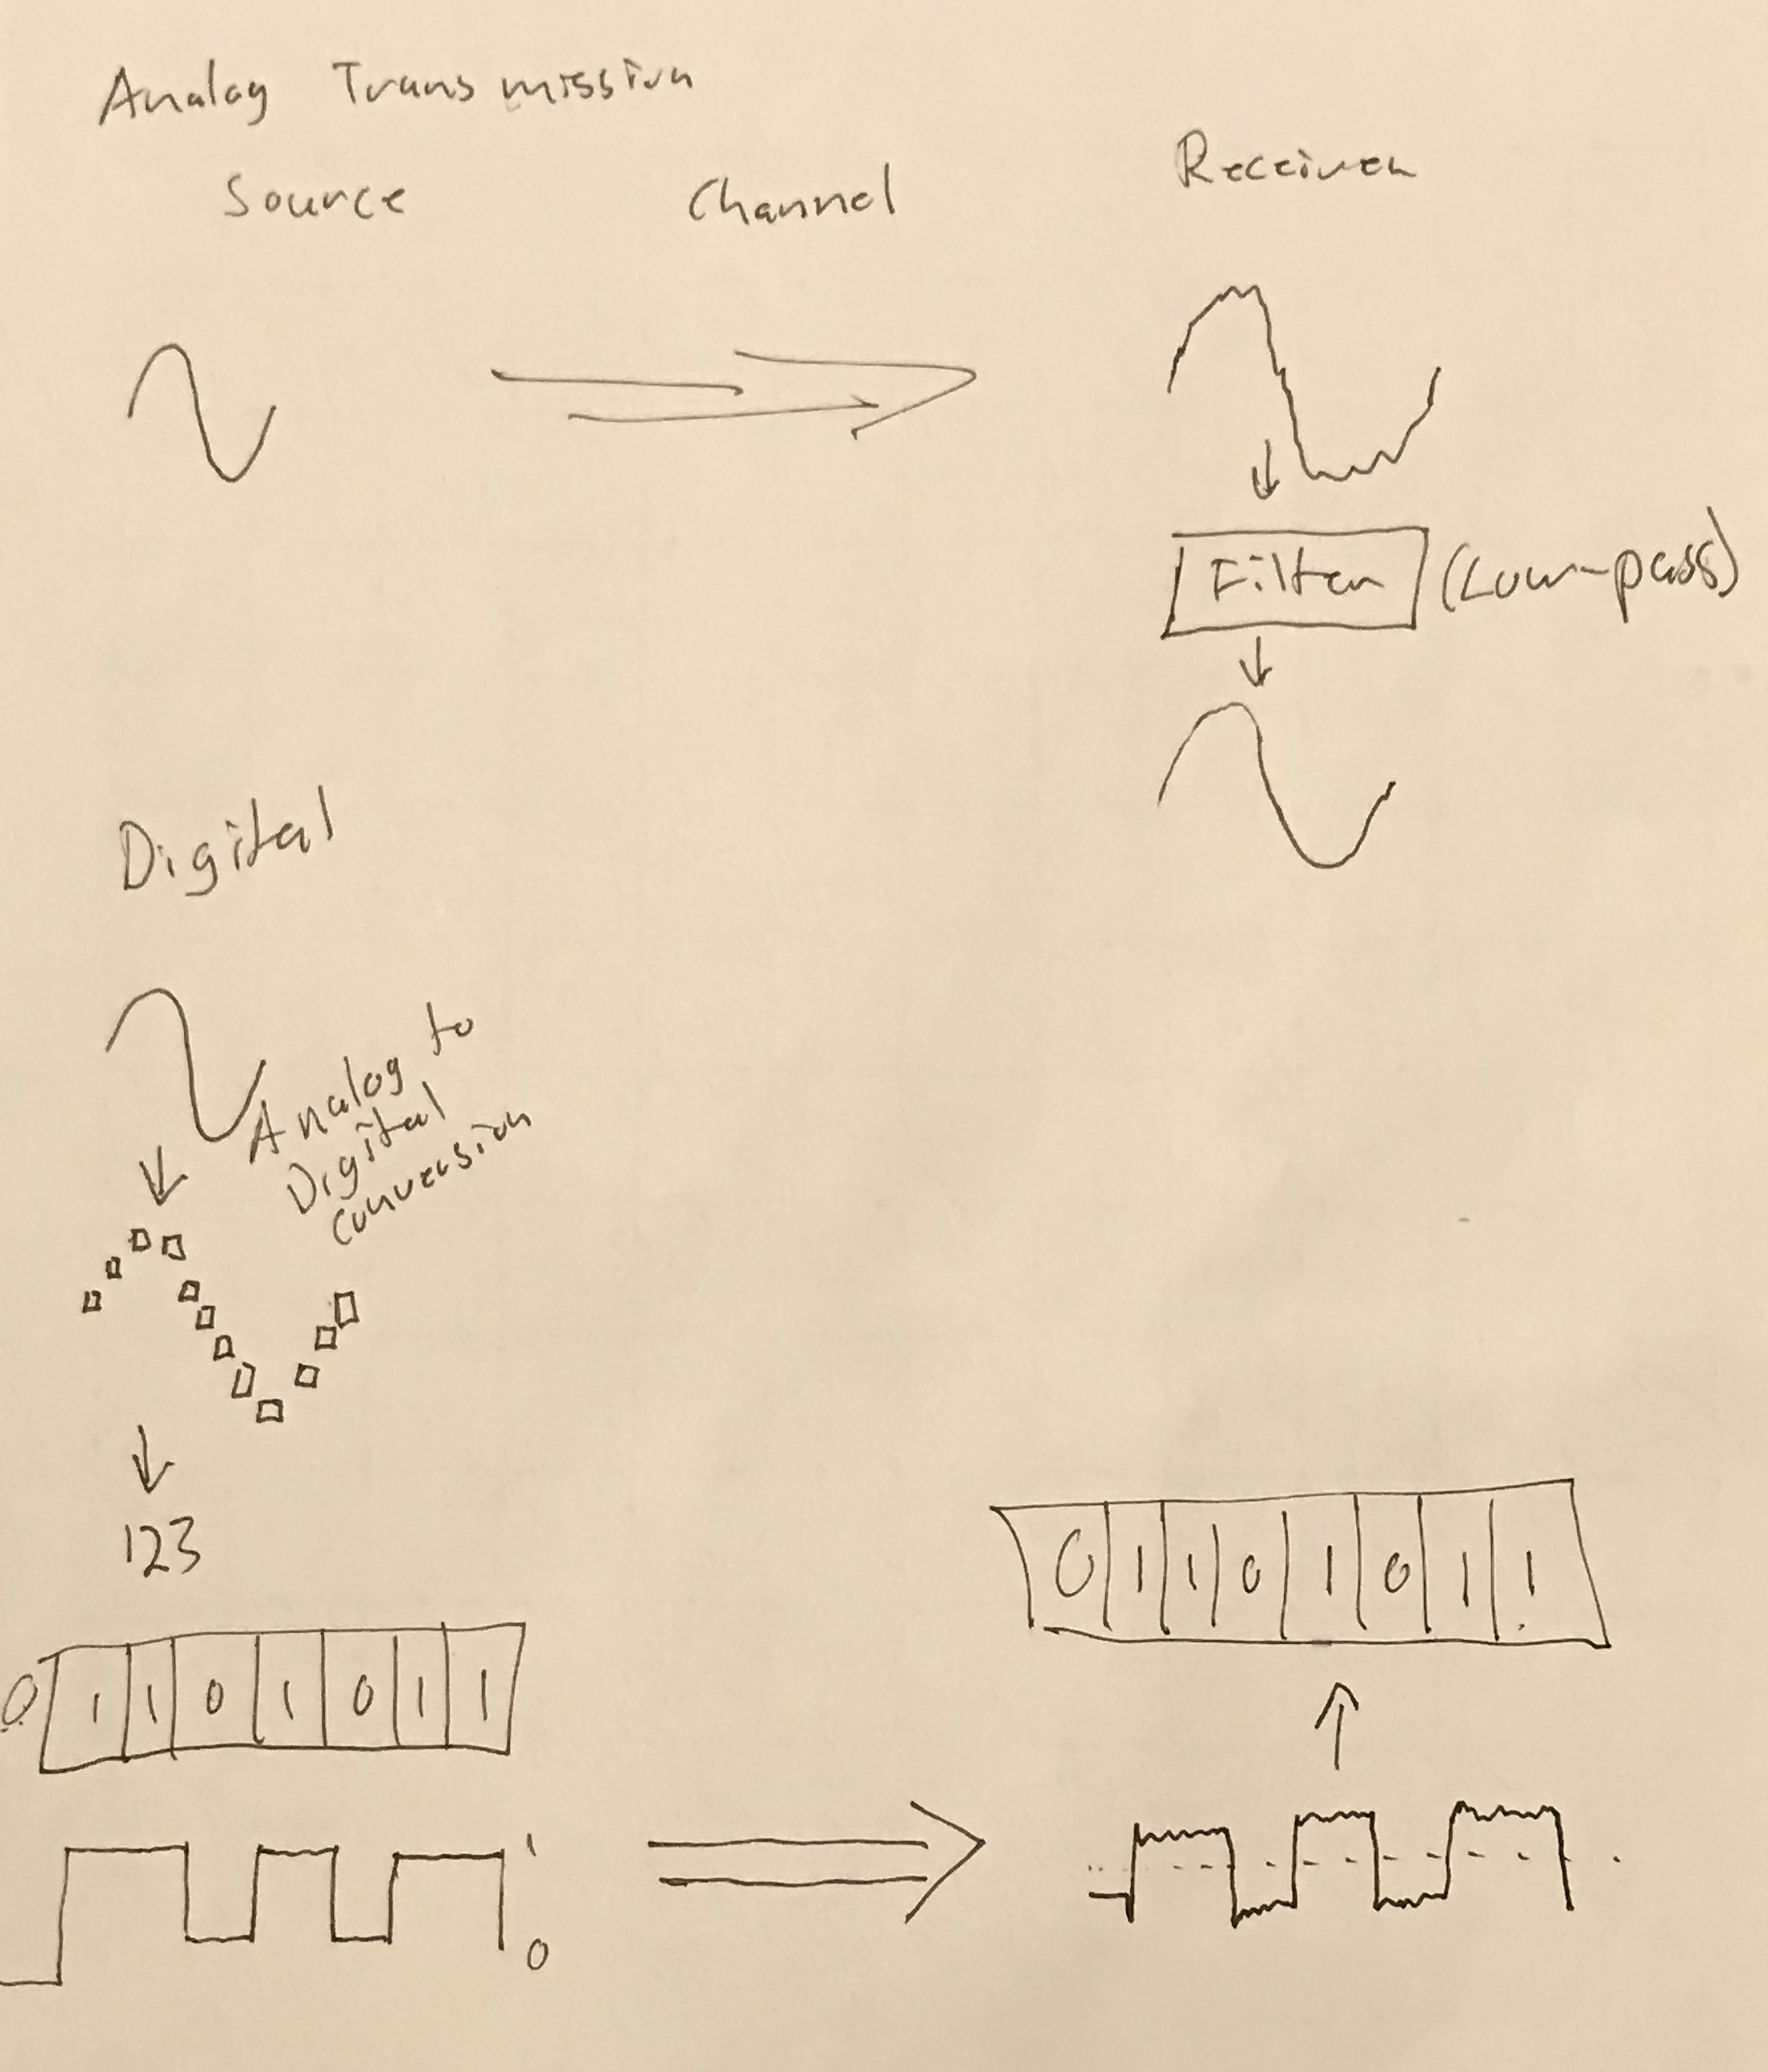 Analog Transmission
Source Channel Receiver
Filter (Low-pass)
Digital
Analog to
Digital
conversion
123
0 1 1 0 1 0 1 1
0 1 1 0 1 0 1 1
1
0